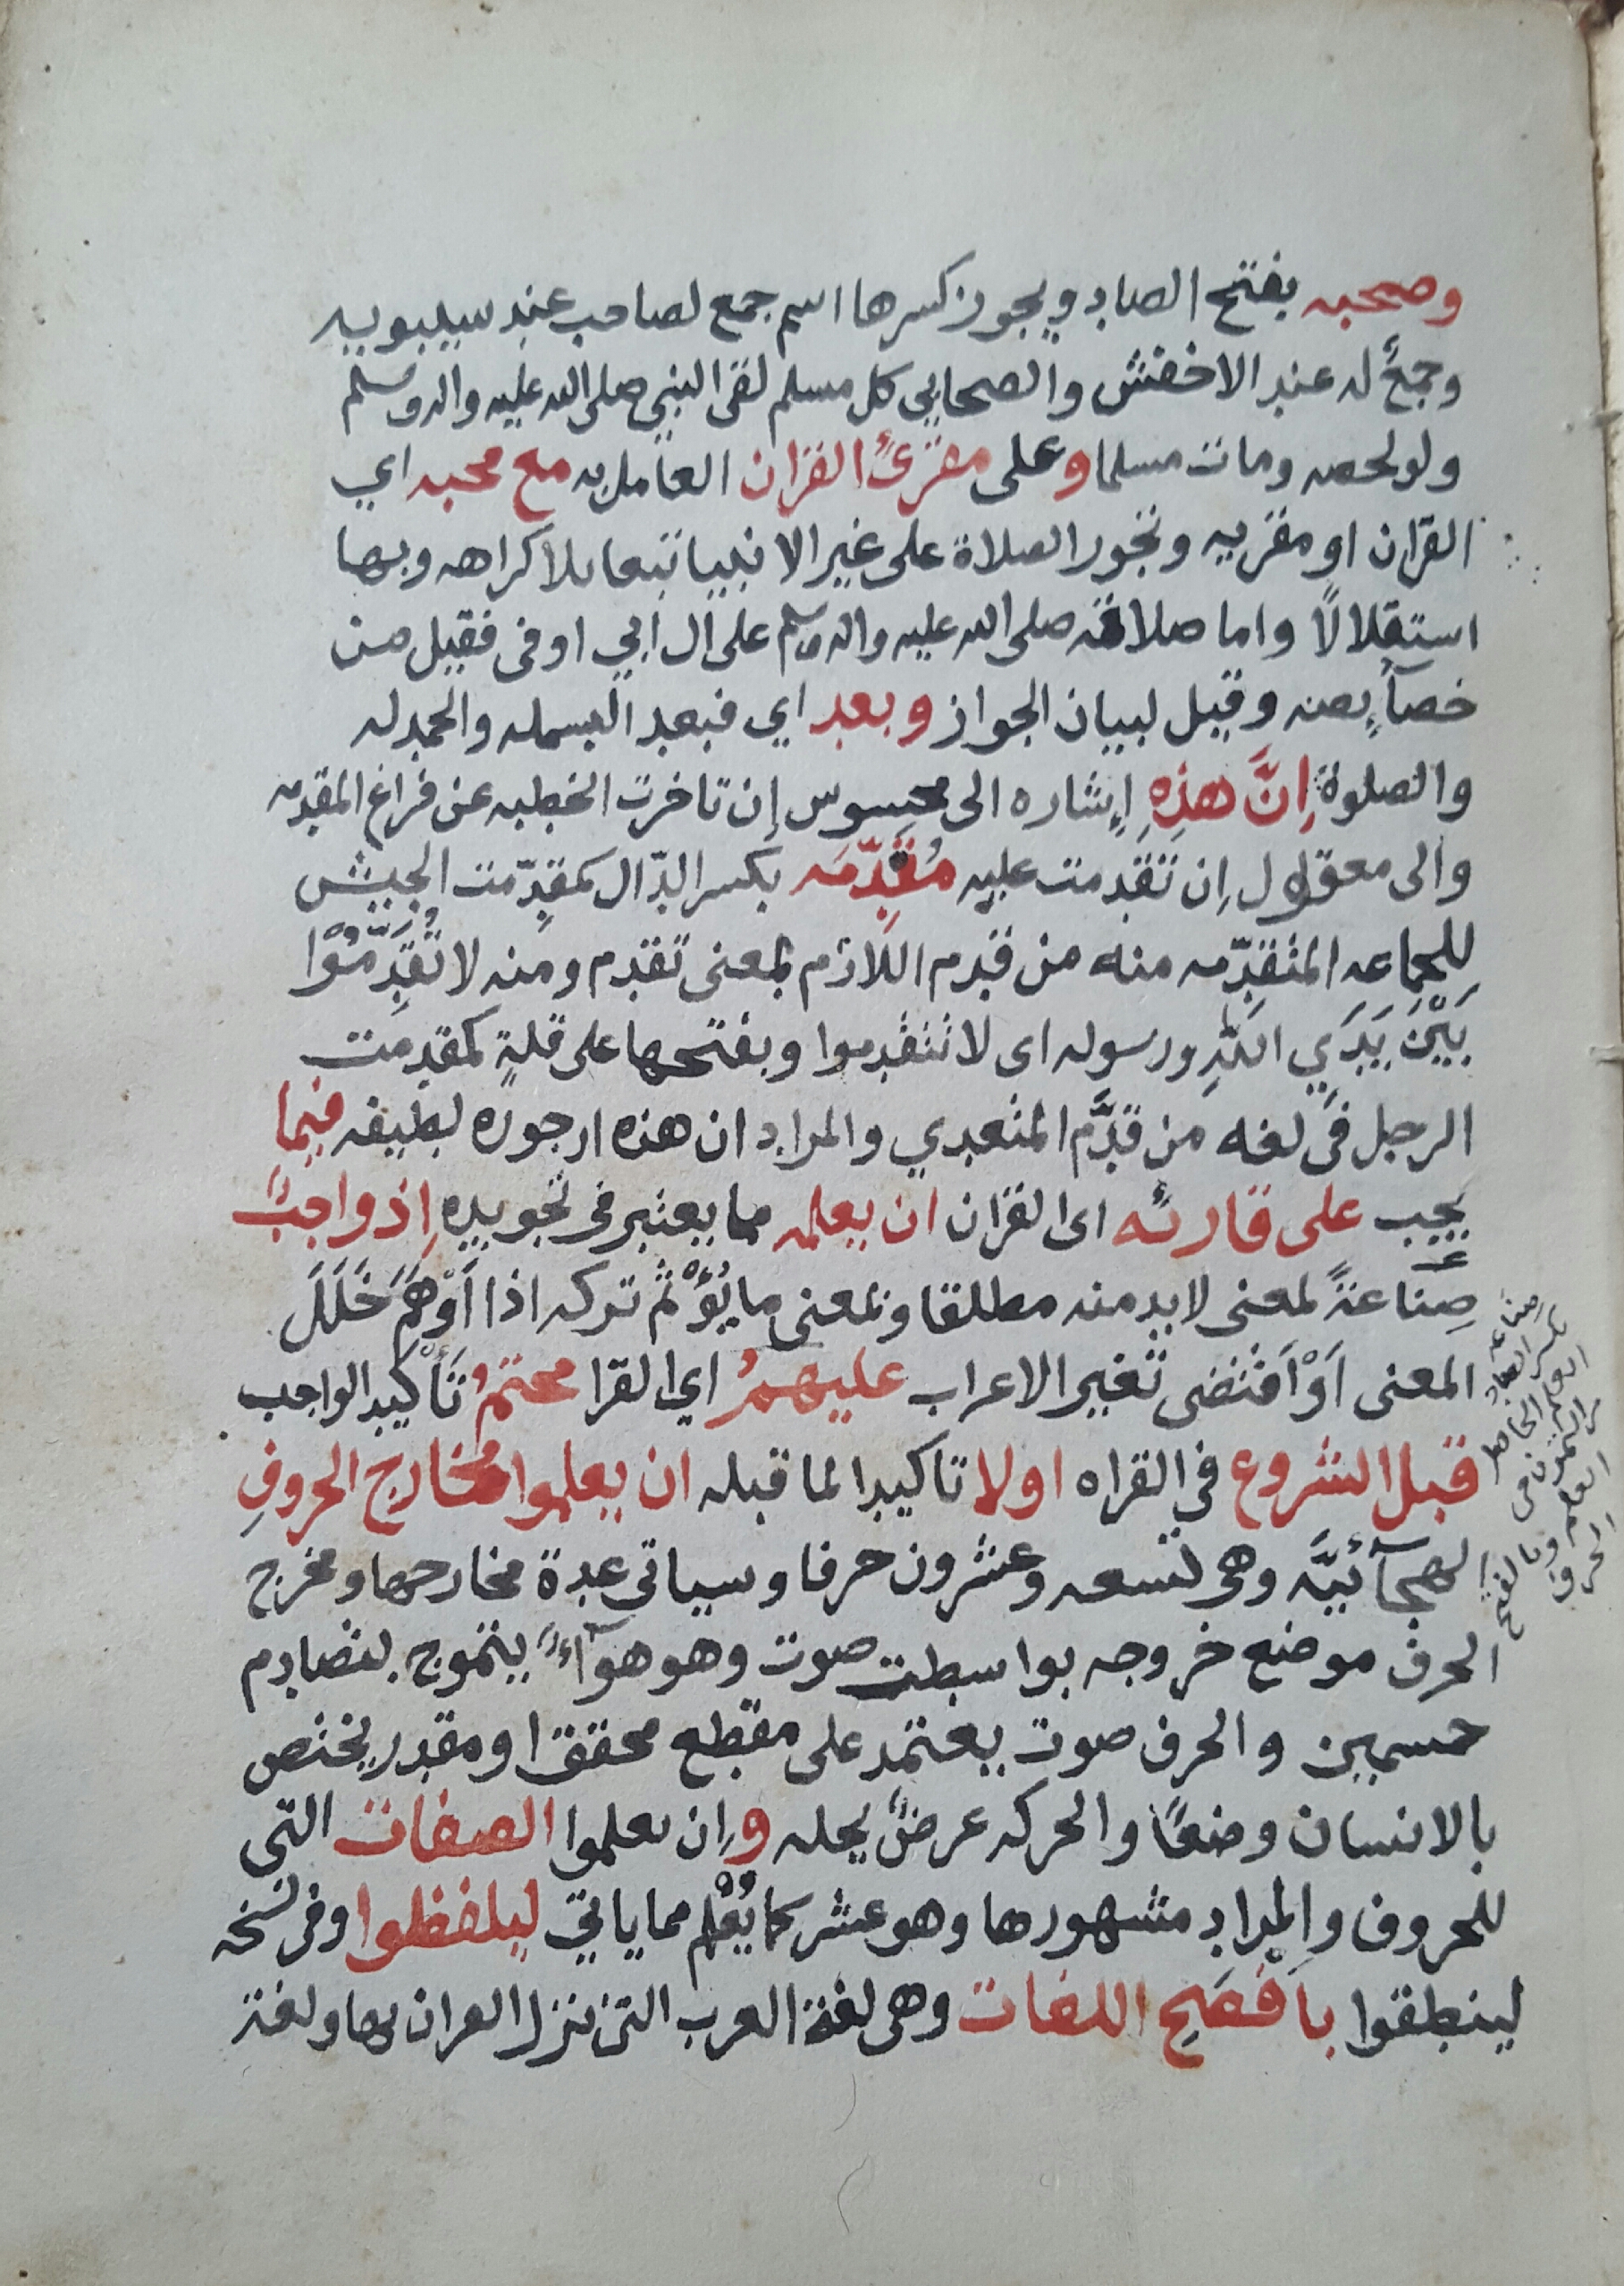 وصحبه بفتح الصاد ويجوز كسرها اسم جمع لصاحب عند سيبويه
وجمعٌ له عند الاخفش والصحابي كل مسلم لقى النبي صلى الله عليه واله وسلم
ولو لحصه ومات مسلما وعلى مقرئ القران العامل به مع محبه اي
القرّان او مقريه وتجوز الصلاة على غير الانبيا تبعا بلا كراهه وبها
استقلالًا واما صلاته صلى الله عليه واله وسلم على ال ابي اوفى فقيل من
خصآيصه وقيل لبيان الجواز وبعد اي فبعد البسمله والحمدله
والصلوة اِنَّ هذِهِ اِشاره الى محسوس اِن تاخرت الخطبه عن فراغ المقدّمه
والى معقول اِن تقدمت عليه مُقدِّمَه بكسر الدّال كمقدِّمت الجيش
للجماعه المتقدّمه منه من قدم اللازم بمعنى تقدم ومنه لا تُقَدِّمُوْا
بَيْنَ يَدَيِ اللّهِ ورسوله اى لا تتقدموا وبفتحها على قلةٍ كمقدمت
الرجل في لغه من قدَّم المتعدي والمراد ان هذه ارجوزه لطيفه فيما
يجب على قارئه اى القران ان يعلمه مما يعتبر في تجويده اِذ واجبٌ
صِنَاعَةً بمعنى لا بد منه مطلقا وبمعنى ما يُؤْثم تركه اذا اَوْهَمَ خَلَلَ
المعنى اَوْ اَقتضى تغيير الاعراب عليهمُ اي القرا محتمُ تَأْكيد الواجب
قبل الشروع في القراه اولا تاكيدا لما قبله ان يعلموا مخارج الحروفِ
الهجآئيَّه وهى تسعه وعشرون حرفا وسياتى عدة مخارجها ومخرج
الحرف موضع خروجه بواسطت صوت وهو هوآءٌ يتموج بتصادم
جسمين والحرف صوت يعتمد على مقطع محقق او مقدر يختص
بالانسان وضعًا والحركه عرضٌ يحله واِن يعلموا الصفات التى
للحروف والمراد مشهورها وهو عشر كما يُعْلم مما ياتي ليلفظوا وفى نسخه
لينطقوا بافصَحِ اللغات وهى لغة العرب التى نزل القران بها ولغة
صناعه
بكسر الصاد
العلم الحاصل
من التمرن في
العلم وبالفتح
الحرف